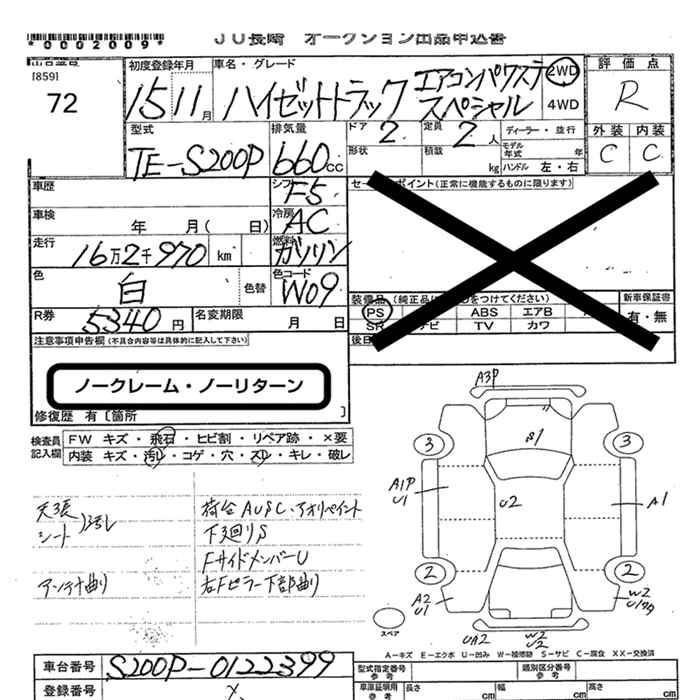 *0002009* JU長崎 オークション出品申込書
[859]
72
初度登録年月 車名・グレード 評価点
15 11月 ハイゼットトラック エアコンパワステスペシャル 2WD 4WD R
型式 排気量 ドア 2 定員 2人 ディーラー・並行 外装 内装
TE-S200P 660cc 形状 積載 kg モデル年式 年 ハンドル 左・右 C C
車歴 シフト F5 セールスポイント(正常に機能するものに限ります)
車検 年 月( 日) 冷房 AC
走行 16万2千970 km 燃料 ガソリン
色 白 色替 色コード W09
装備品 (純正品に○をつけてください) 新車保証書
PS ABS エアB 有・無
SR ナビ TV カワ
R券 5340円 名変期限 月 日
注意事項申告欄(不具合内容等は具体的に記入して下さい)
ノークレーム・ノーリターン
修復歴 有〔箇所 〕
検査員記入欄 FW キズ・飛石・ヒビ割・リペア跡・×要
内装 キズ・汚れ・コゲ・穴・スレ・キレ・破レ
天張 シート 汚レ
アンテナ曲り
荷台AUSC・アオリペイント
下廻りS
FサイドメンバーU
右Fピラー下部曲り
A3P
S1
3 3
A1P U1
U2
A1
2 2
A2 U1
W2
UA2
W2 U2
スペア
A−キズ E−エクボ U−凹み W−補修跡 S−サビ C−腐食 XX−交換済
車台番号 S200P-0122399
登録番号
型式指定番号 参考 類別区分番号 参考
車庫証明用 参考 長さ cm 幅 cm 高さ cm